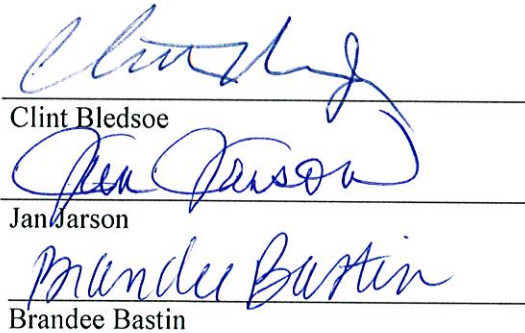 Clint Bledsoe
Jan Jarson
Jan Jarson
Brandee Bastin
Brandee Bastin